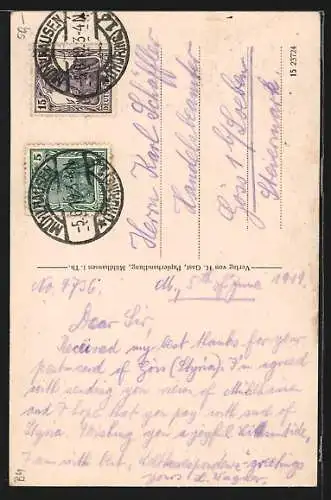 Herrn Karl Schäffler
Handelsbeamter
Göss 1 b/ Leoben
Steiermark.
15 23724
MÜHLHAUSEN
15
5
MÜHLHAUSEN
Verlag von H. Gast, Papierhandlung, Mühlhausen i. Th.
No. 8736. M., 5th of June 1919.
Dear Sir,
Received my best thanks for your
postcard of Göss (Styria). I'm agreed
with sending you views of Mühlhausen
and I hope that you pay with such of
Styria. Wishing you a joyful Whitsuntide,
I am with best greetings
yours Wagner.